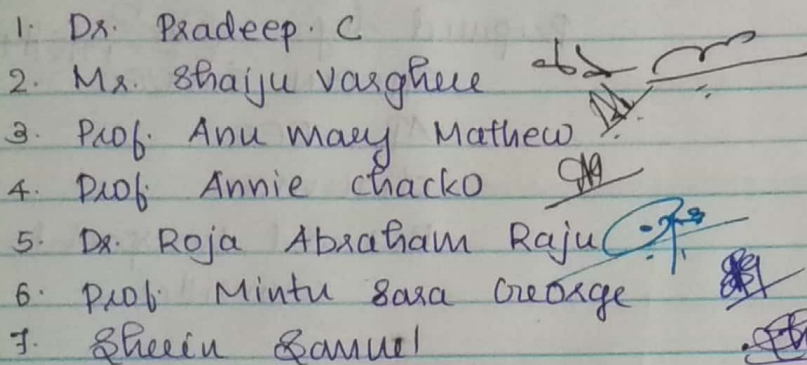 1. Dr. Pradeep. C
2. Mr. Shaiju Varghese
3. Prof. Anu Mary Mathew
4. Prof. Annie Chacko
5. Dr. Roja Abraham Raju
6. Prof. Mintu Sara George
7. Sherin Samuel